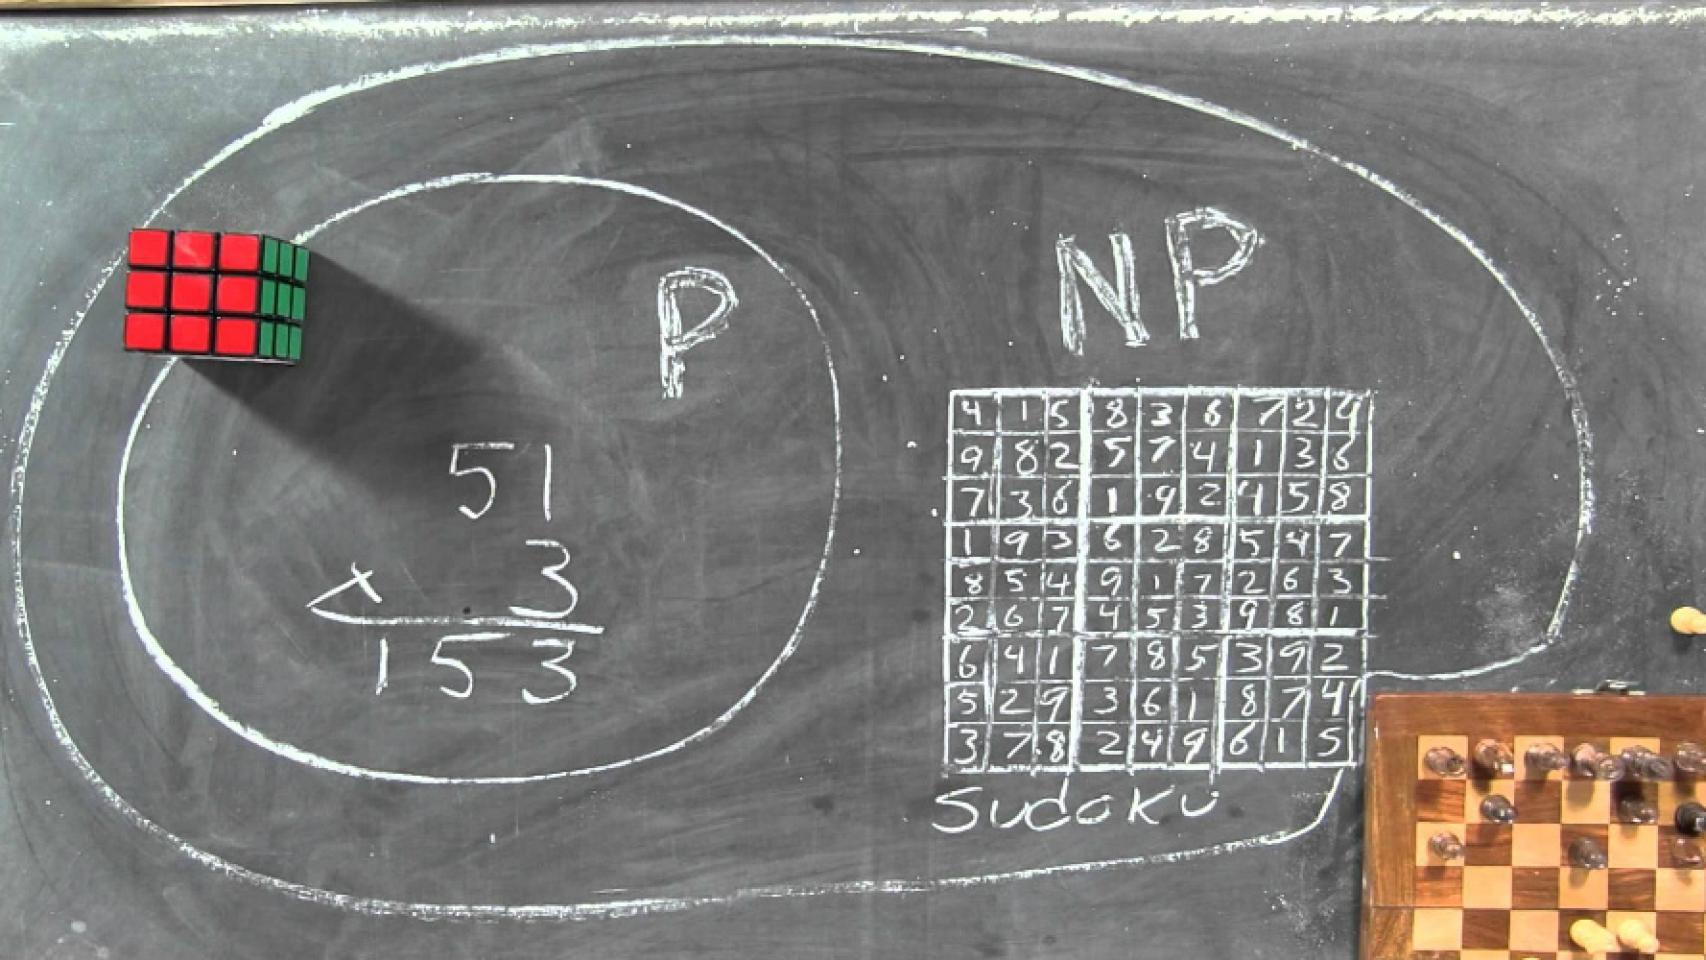 NP
P
51
× 3
153
4 1 5 8 3 6 7 2 4
9 8 2 5 7 4 1 3 6
7 3 6 1 9 2 4 5 8
1 9 3 6 2 8 5 4 7
8 5 4 9 1 7 2 6 3
2 6 7 4 5 3 9 8 1
6 4 1 7 8 5 3 9 2
5 2 9 3 6 1 8 7 4
3 7 8 2 4 9 6 1 5
Sudoku